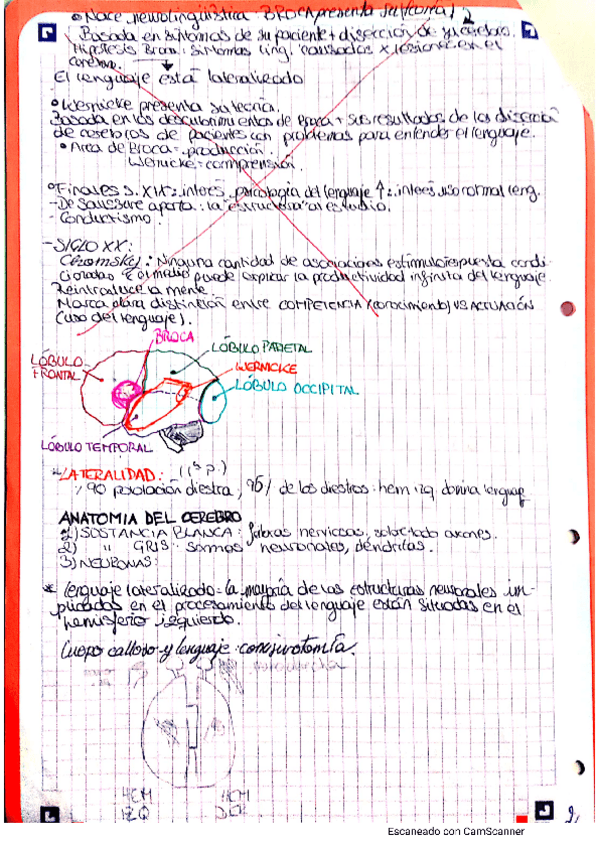 • Nace neurolingüística: BROCA presenta su teoría / 2
Basada en síntomas de su paciente + disección de su cerebro.
Hipótesis Broca: síntomas ling. causados x lesiones en el
cerebro.
El lenguaje está lateralizado
• Wernicke presenta su teoría.
Basada en los descubrimientos de Broca + sus resultados de las disección
de cerebros de pacientes con problemas para entender el lenguaje.
• Area de Broca = producción.
Wernicke = comprensión.
• Finales s. XIX: interés psicología del lenguaje ↑: interés uso normal leng.
- De Saussure aporta: la "estructura" al estudio.
- Conductismo.
- SIGLO XX:
Chomsky: Ninguna cantidad de asociaciones estímulo respuesta condi-
cionadas x el medio puede explicar la productividad infinita del lenguaje.
Reintroduce la mente.
Marca clara distinción entre COMPETENCIA (conocimiento) VS ACTUACIÓN
(uso del lenguaje).
BROCA
LÓBULO PARIETAL
LÓBULO FRONTAL
WERNICKE
LÓBULO OCCIPITAL
LÓBULO TEMPORAL
LATERALIDAD:
% 90 población diestra; 96% de los diestros: hem izq domina lenguaje
ANATOMIA DEL CEREBRO
1) SUSTANCIA BLANCA: fibras nerviosas, sobre todo axones.
2) " GRIS: somas neuronales, dendritas.
3) NEURONAS:
* lenguaje lateralizado = la mayoría de las estructuras neuronales im-
plicadas en el procesamiento del lenguaje están situadas en el
hemisferio izquierdo.
Cuerpo calloso y lenguaje:
HEM HEM
IZQ DCH
2,
Escaneado con CamScanner